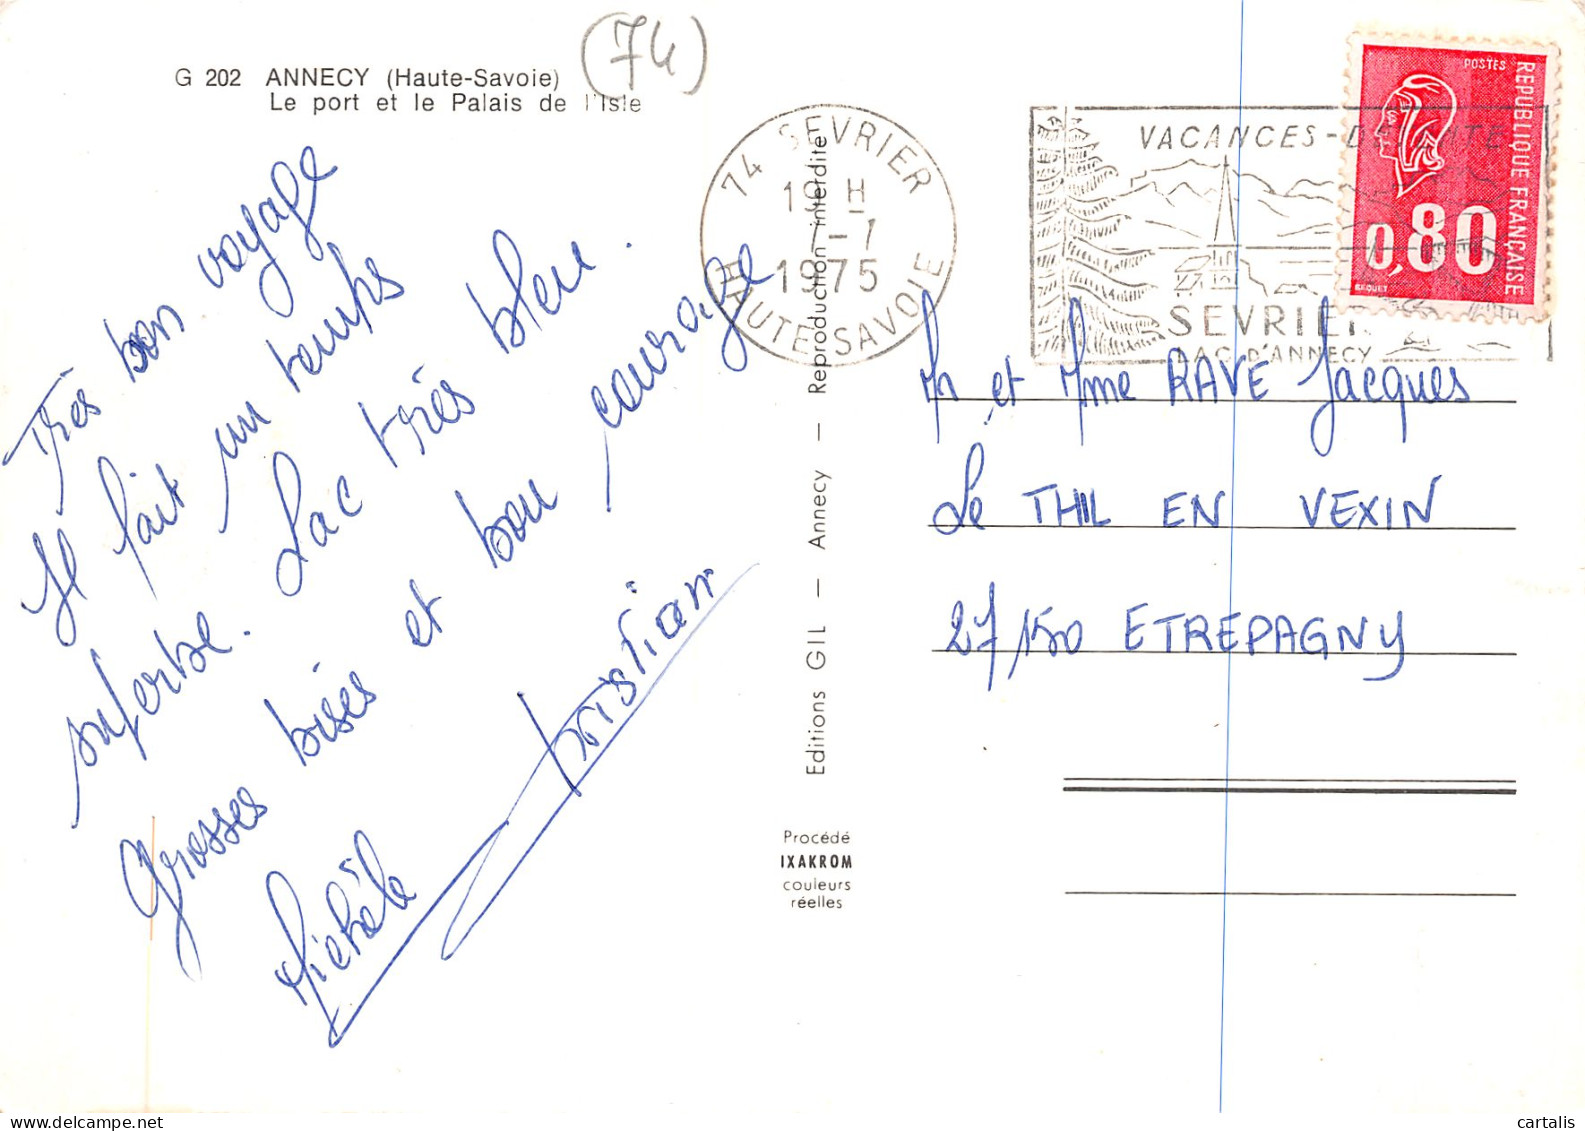 (74)
G 202 ANNECY (Haute-Savoie)
Le port et le Palais de l'Isle
Très bon voyage
Il fait un temps
superbe. Lac très bleu.
Grosses bises et bon courage
Michèle Christian
Editions GIL — Annecy — Reproduction interdite
Procédé
IXAKROM
couleurs
réelles
74 SEVRIER
19 H
7-7
1975
HAUTE-SAVOIE
VACANCES-DETENTE
SEVRIER
LAC D'ANNECY
POSTES
REPUBLIQUE FRANÇAISE
0,80
BEQUET
M et Mme RAVE Jacques
Le THIL EN VEXIN
27150 ETREPAGNY
delcampe.net
cartalis